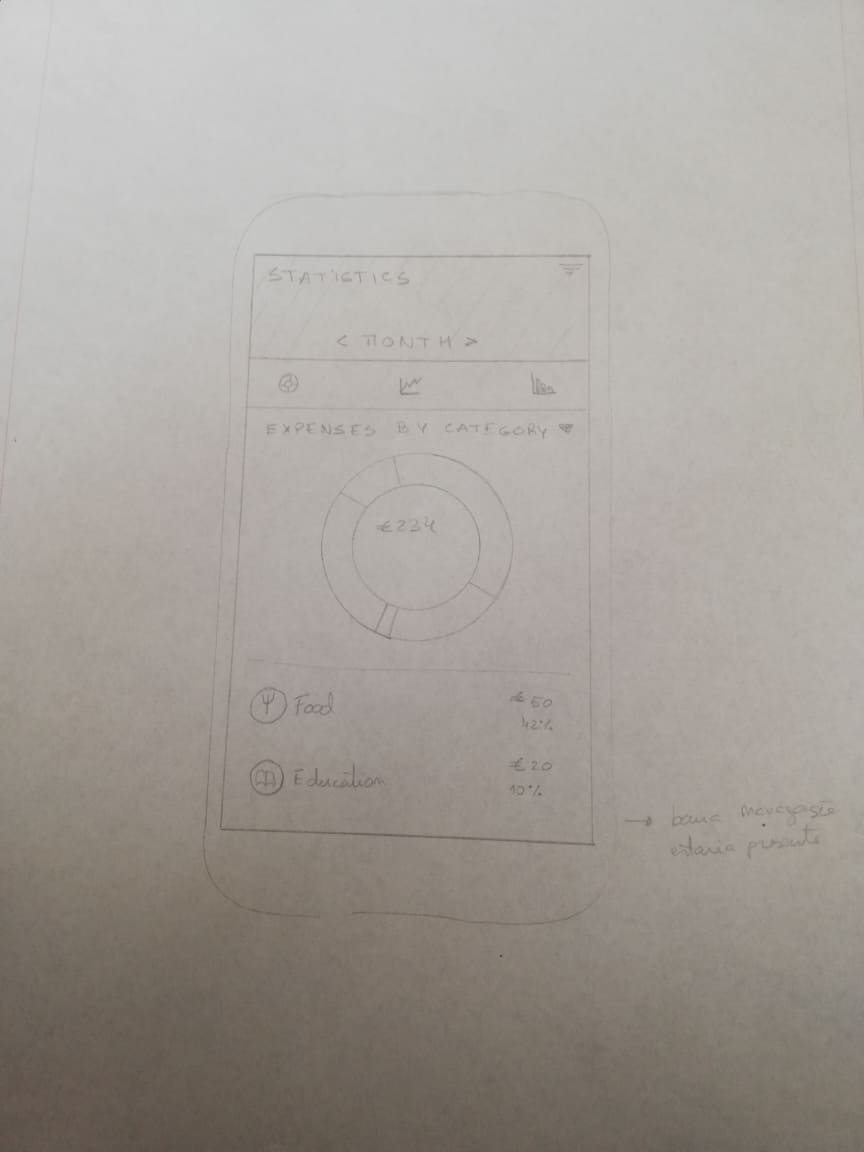 STATISTICS
< MONTH >
EXPENSES BY CATEGORY
€234
Food
€50
42%
Education
€20
10%
→ barra navegação
estaria presente